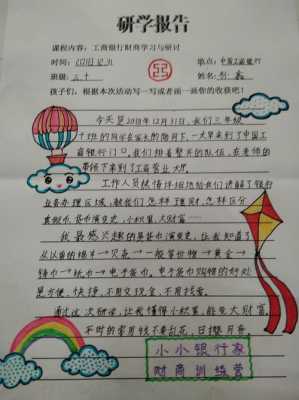 研学报告
课程内容：工商银行财商学习与研讨
时间：2018.12.31 地点：中国工商银行
班级：三十 姓名：
孩子们，根据本次活动写一写或者画一画你的收获吧！
今天是2018年12月31日，我们三年级
十班的同学在家长的陪同下，一大早来到了中国工
商银行门口。我们排着整齐的队伍，在老师的
带领下来到了工商营业大厅。
工作人员热情详细地给我们讲解了银行
业务办理区域，教我们怎样理财，怎样区分
真假币，货币演变史，小积累，大财富……
我最感兴趣的是货币演变史，让我知道了
从以前的绵羊→贝壳→一般等价物→黄金→
钱币→纸币→电子货币。电子货币购物的好处
是方便，快捷，不用交现金，不用找零。
通过这次研学，让我懂得小积累，能变大财富，
平时的零用钱不要乱花，日攒月存。
小小银行家
财商训练营